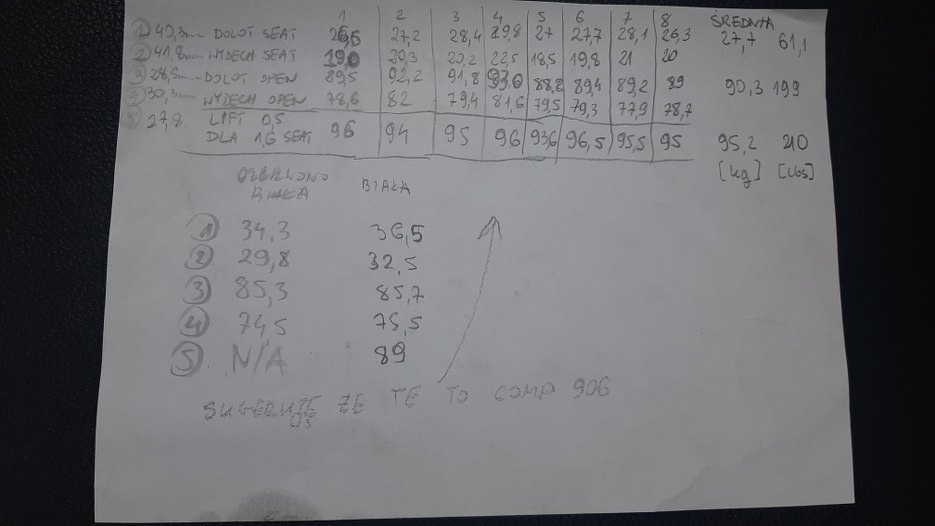 1 2 3 4 5 6 7 8 ŚREDNIA
① 40,3mm DOLOT SEAT 26,6 27,2 28,4 29,8 27 27,7 28,1 26,3 27,7 61,1
② 41,8mm WYDECH SEAT 19,0 20,3 20,2 22,5 18,5 19,8 21 20
③ 28,5mm DOLOT OPEN 89,5 92,2 91,8 93,0 88,2 89,4 89,2 89 90,3 199
④ 30,3mm WYDECH OPEN 78,6 82 79,4 81,6 79,5 79,3 77,9 78,7
⑤ 27,8 LIFT 0,5
DLA 1,6 SEAT 96 94 95 96 93,6 96,5 95,5 95 95,2 210
[kg] [Lbs]
BIAŁA
① 34,3 36,5
② 29,8 32,5
③ 85,3 85,7
④ 74,5 75,5
⑤ N/A 89
ŻE TE TO COMP 906